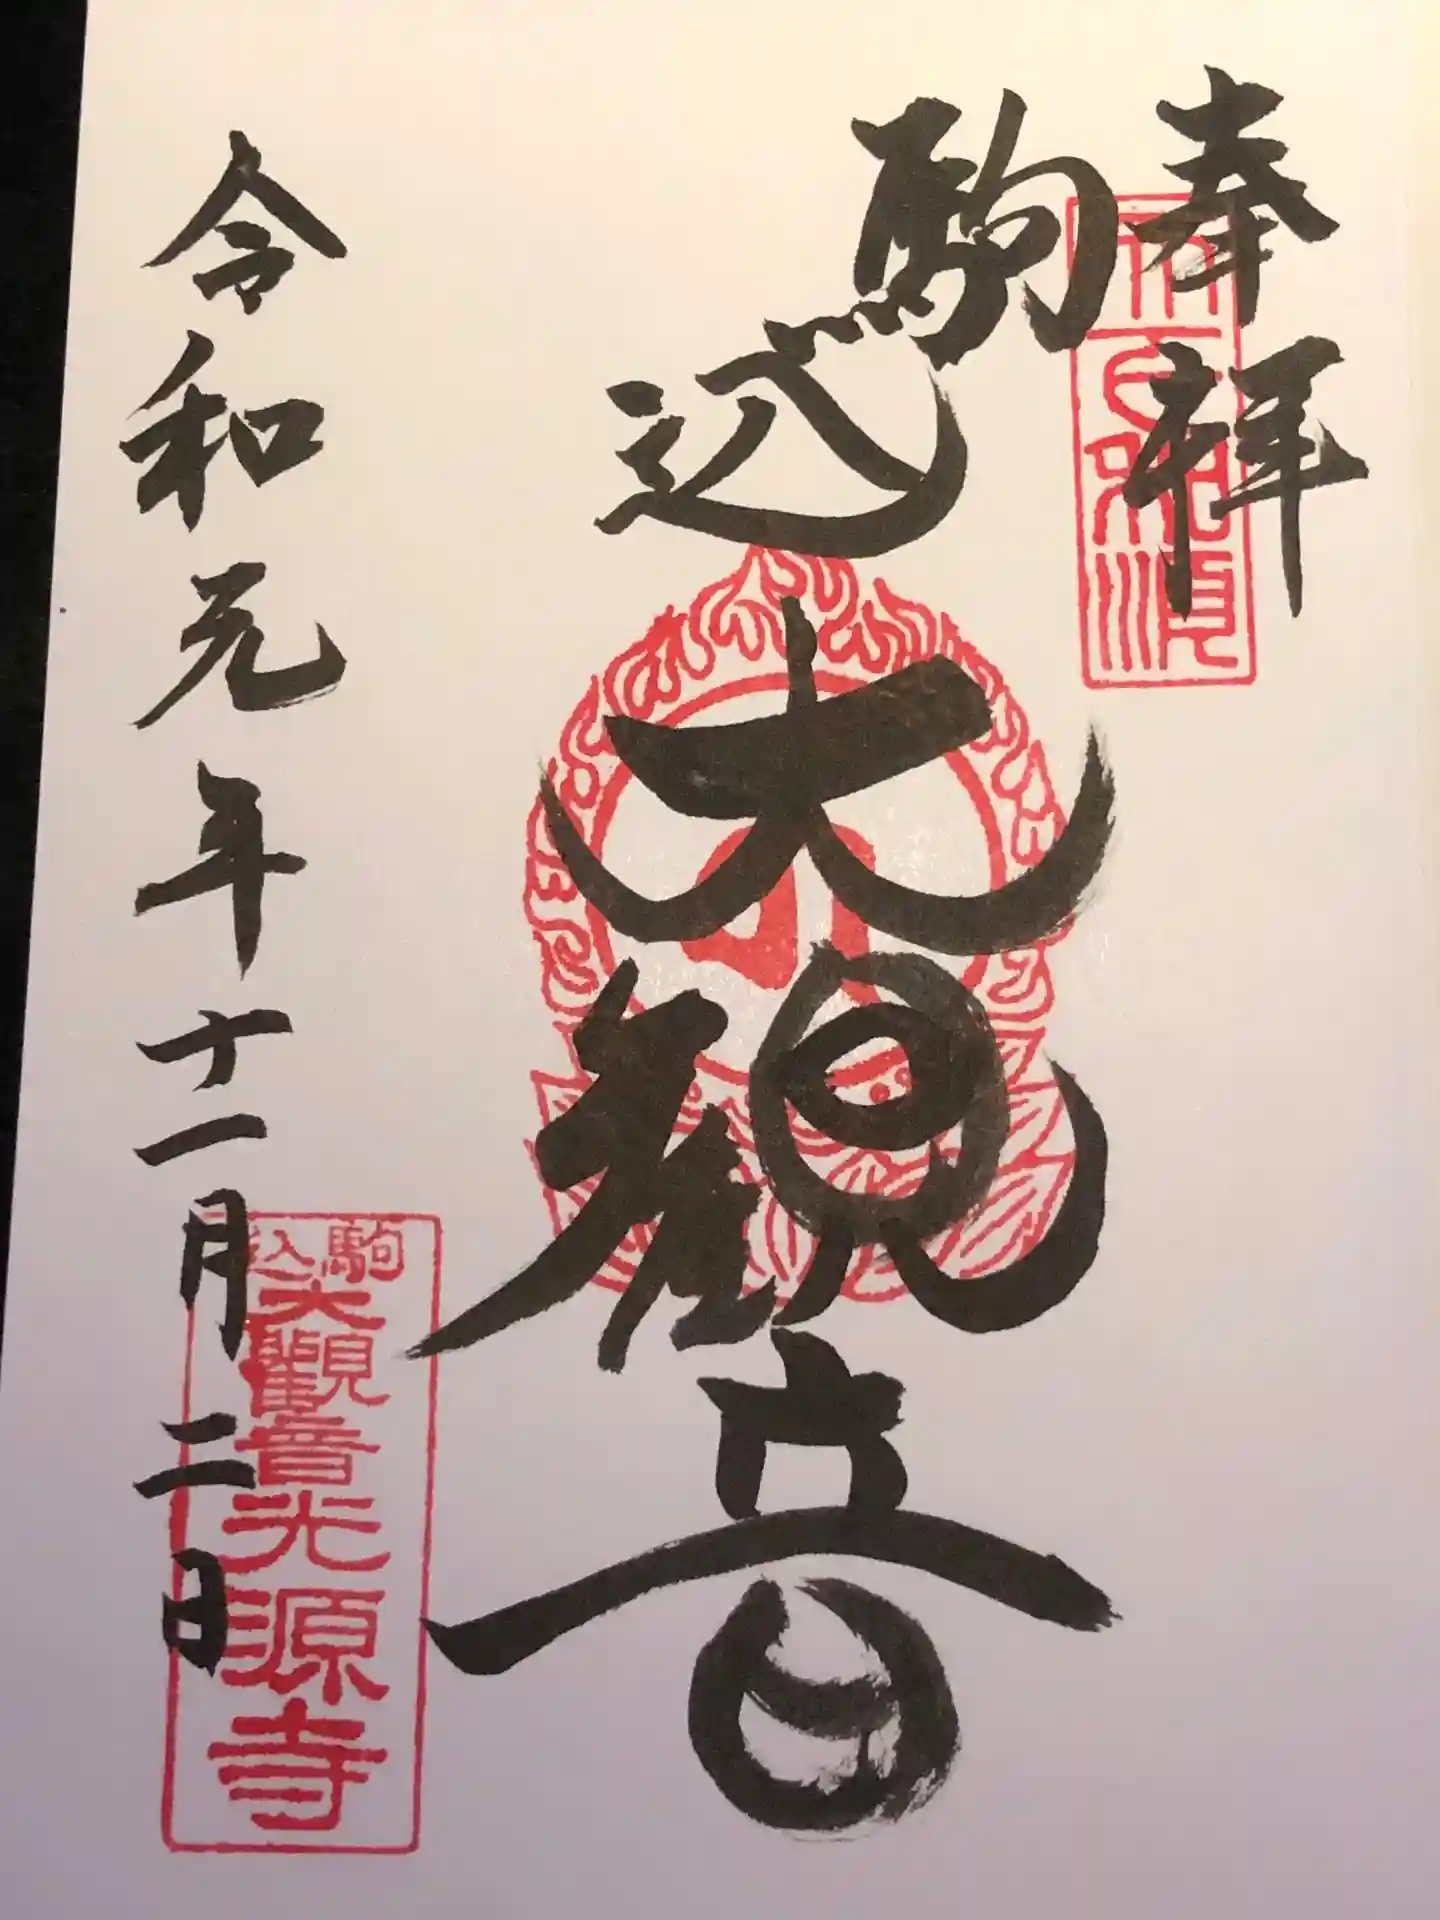 奉拝
駒込
大観音
令和元年十一月二日
駒込
大觀音光源寺